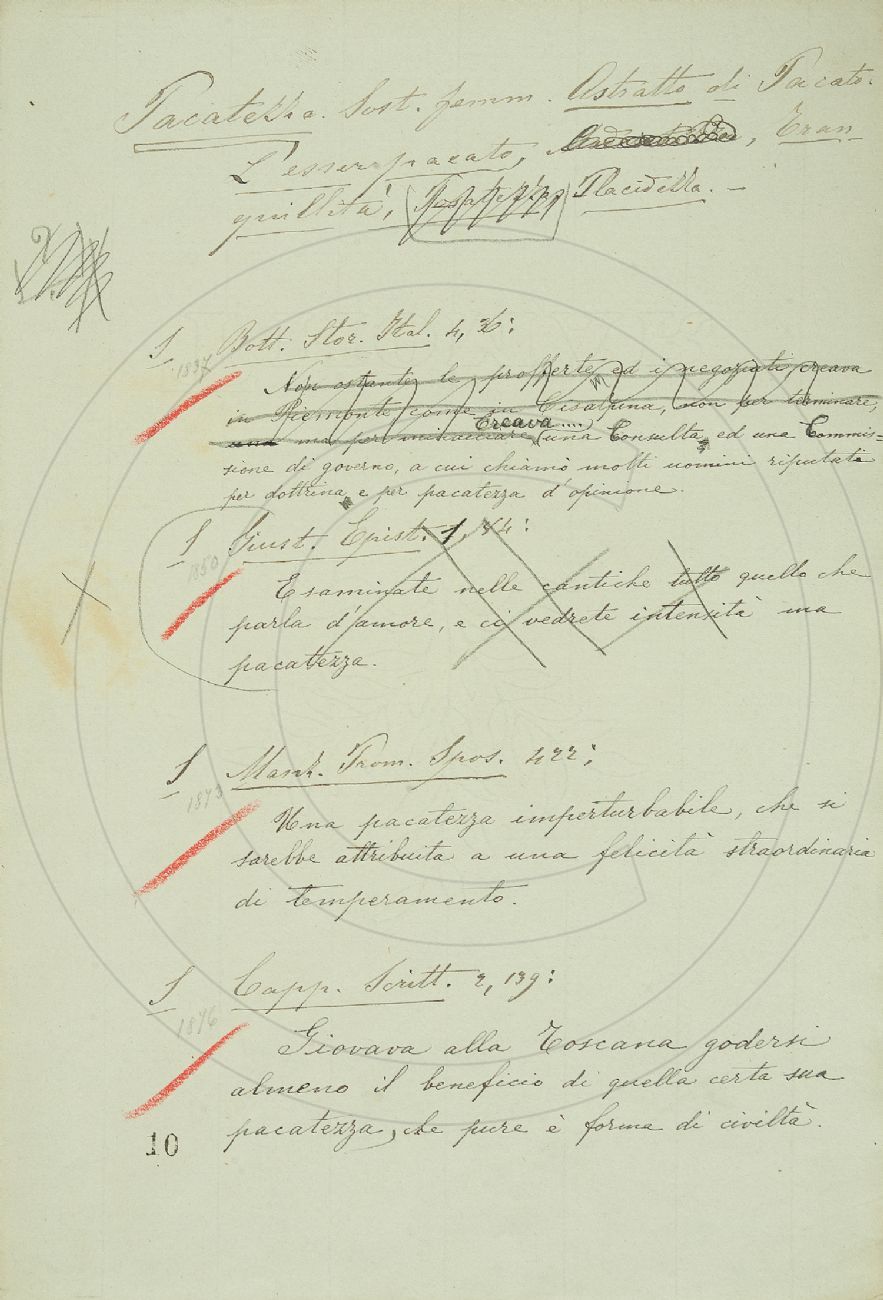 Pacatezza. Sost. femm. Astratto di Pacato.
L'esser pacato, Tran-
quillità, Placidezza. —
S Bott. Stor. Ital. 4,
1837
Non ostante le profferte ed i negoziati creava
in Piemonte, come in Cisalpina, non per terminare,
ma per minacciare Creava.... una Consulta, ed una Commis=
sione di governo, a cui chiamò molti uomini riputati
per dottrina, e per pacatezza d'opinione.
S Giust. Epist. 1, 84:
1850
Esaminate nelle cantiche tutto quello che
parla d'amore, e ci vedrete intensità una
pacatezza.
S Manz. Prom. Spos. 422:
1873
Una pacatezza imperturbabile, che si
sarebbe attribuita a una felicità straordinaria
di temperamento.
S Capp. Scritt. 2, 139:
1876
Giovava alla Toscana godersi
almeno il beneficio di quella certa sua
pacatezza, che pure è forma di civiltà.
10